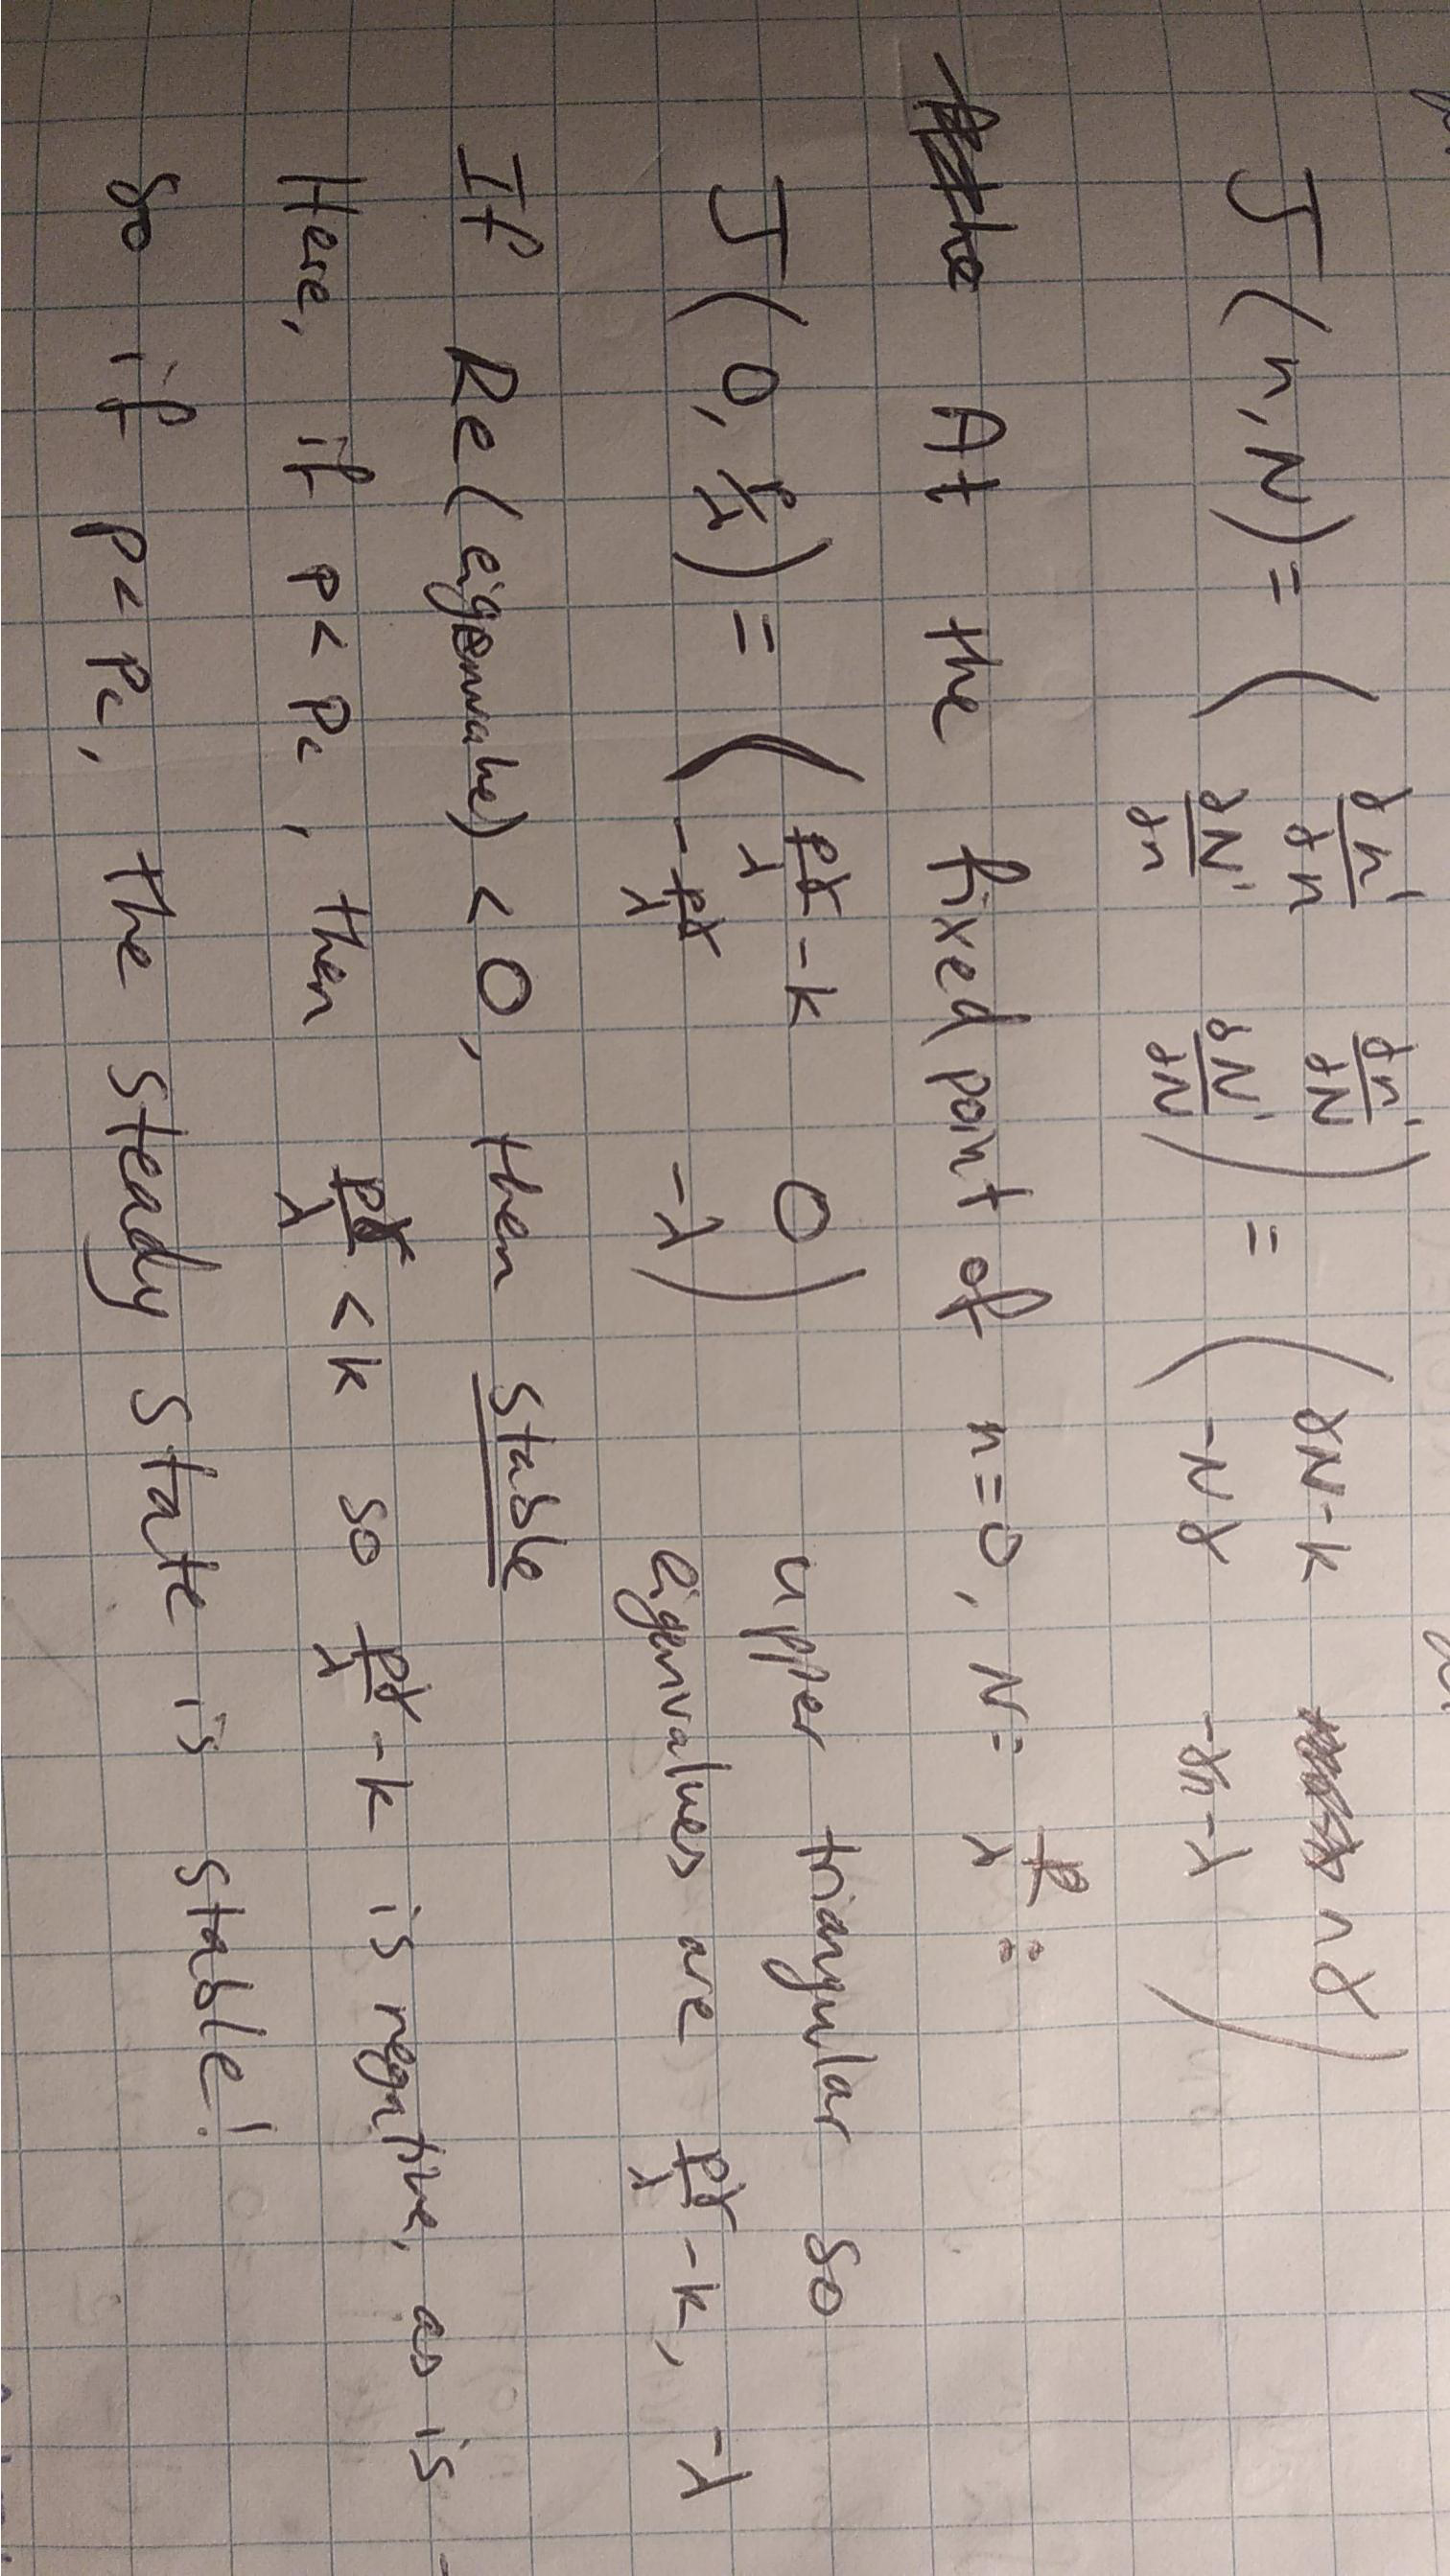 J(n,N) = ( ∂ṅ/∂n ∂ṅ/∂N
∂Ṅ/∂n ∂Ṅ/∂N ) = ( γN-k γn
-Nγ -γn-λ )
the At the fixed point of n=0, N= p/λ :
J(0, p/λ) = ( pγ/λ -k 0 upper triangular so
-pγ/λ -λ ) eigenvalues are pγ/λ -k, -λ
If Re(eigenvalue) < 0, then stable
Here, if p < pc, then pγ/λ < k so pγ/λ -k is negative, as is
so if p < pc, the steady state is stable!